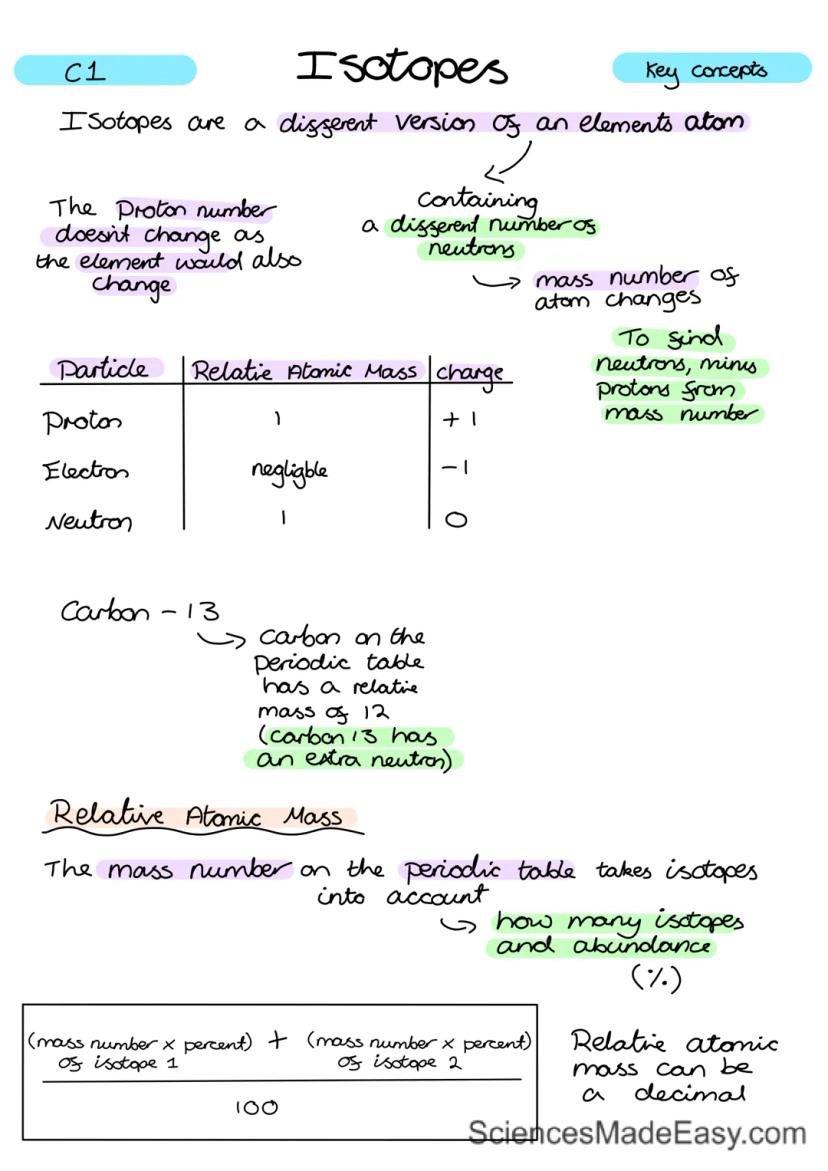 C1
Isotopes
Key concepts
Isotopes are a different version of an elements atom
The Proton number
doesn't change as
the element would also
change
containing
a different number of
neutrons
mass number of
atom changes
To find
neutrons, minus
protons from
mass number
Particle Relatie Atomic Mass charge
Proton 1 +1
Electron negligble -1
Neutron 1 0
Carbon - 13
Carbon on the
periodic table
has a relative
mass of 12
(carbon 13 has
an extra neutron)
Relative Atomic Mass
The mass number on the periodic table takes isotopes
into account
how many isotopes
and abundance
(%)
(mass number x percent) + (mass number x percent)
of isotope 1 of isotope 2
100
Relatie atomic
mass can be
a decimal
SciencesMadeEasy.com